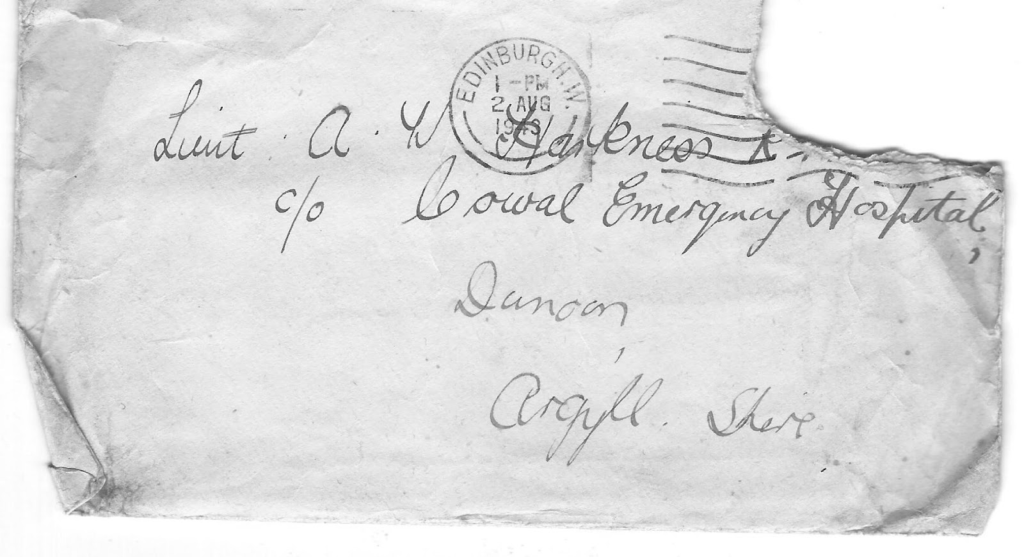 EDINBURGH.W.
1-PM
2 AUG
1943
Lieut. A. W. Harkness R
c/o Cowal Emergency Hospital,
Dunoon,
Argyll. Shire.